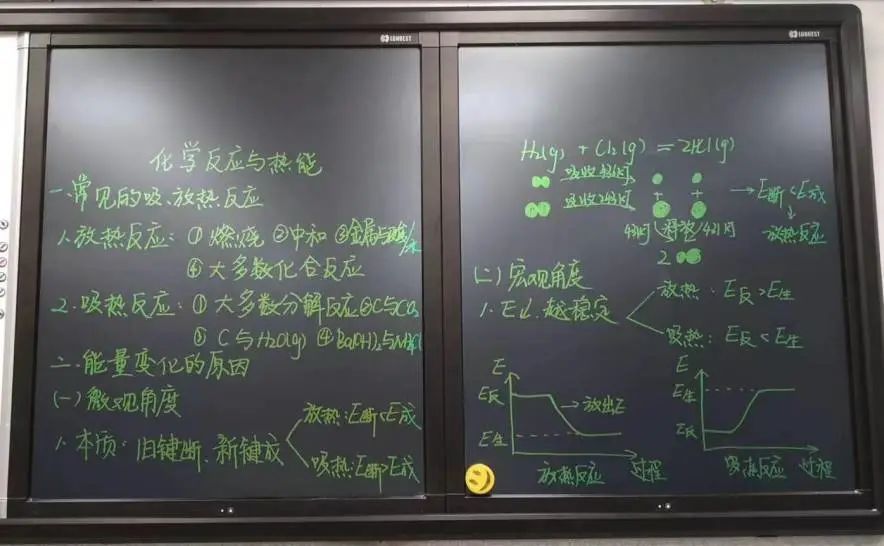 SUNBEST
化学反应与热能
一.常见的吸、放热反应
1.放热反应：①燃烧 ②中和 ③金属与酸/水
④大多数化合反应
2.吸热反应：①大多数分解反应②C与CO₂
③ C与H₂O(g) ④Ba(OH)₂与NH₄Cl
二.能量变化的原因
(一)微观角度
放热：E断<E成
1.本质：旧键断、新键成
吸热：E断>E成
SUNBEST
H₂(g) + Cl₂(g) = 2HCl(g)
吸收436kJ
+ +
吸收243kJ
→E断<E成
放热反应
431kJ 释放 431kJ
2
(二)宏观角度
放热：E反>E生
1.E↓.越稳定
吸热：E反<E生
E
E反
→放出E
E生
放热反应 过程
E
E生
E反
吸热反应 过程